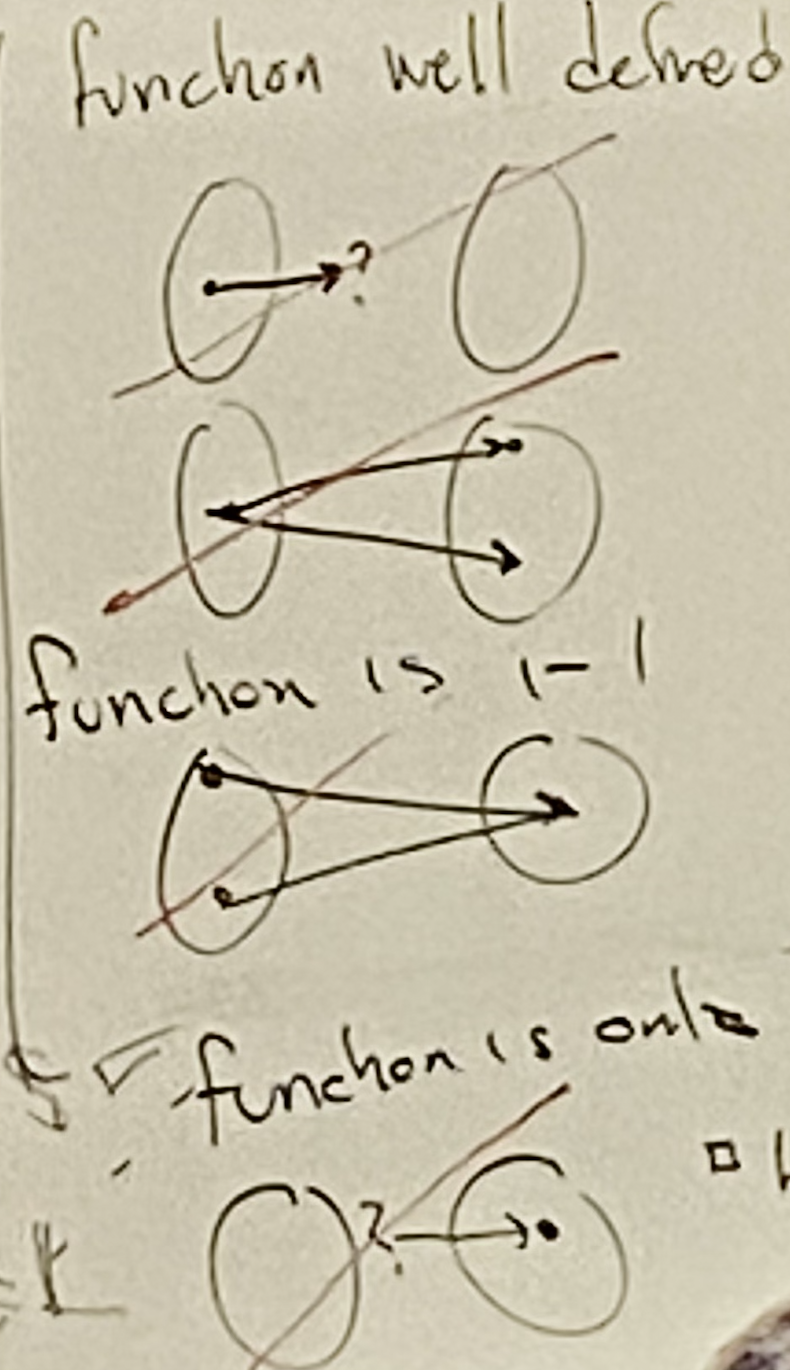 function well defined
?
function is 1-1
function is onto
?